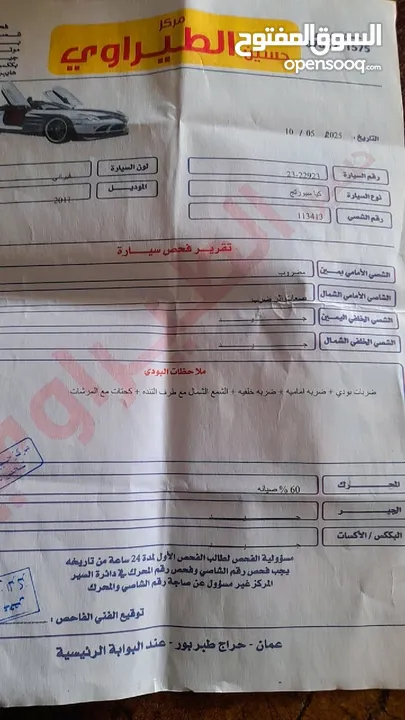 السوق المفتوح
opensooq.com
مركز
حسين الطيراوي
1575
التاريخ: 10 / 05 / 2025
رقم السيارة 23-22923
لون السيارة
نوع السيارة
الموديل 2011
رقم الشصي 113412
تقرير فحص سيارة
الشصي الأمامي يمين مضروب
الشاصي الأمامي الشمال ضرب
الشصي الخلفي اليمين جيد
الشصي الخلفي الشمال جيد
ملاحظات البودي
ضربات بودي + ضربه اماميه + ضربه خلفيه + الشمع الشمال مع طرف التنده + كحتات مع المرشات
المحرك 60 % صيانه
الجير جيد
البكس / الأكسات جيد
مسؤولية الفحص لطالب الفحص الأول لمدة 24 ساعة من تاريخه
يجب فحص رقم الشاصي وفحص رقم المحرك في دائرة السير
المركز غير مسؤول عن صاجة رقم الشاصي والمحرك
توقيع الفني الفاحص :
عمان - حراج طبربور - عند البوابة الرئيسية